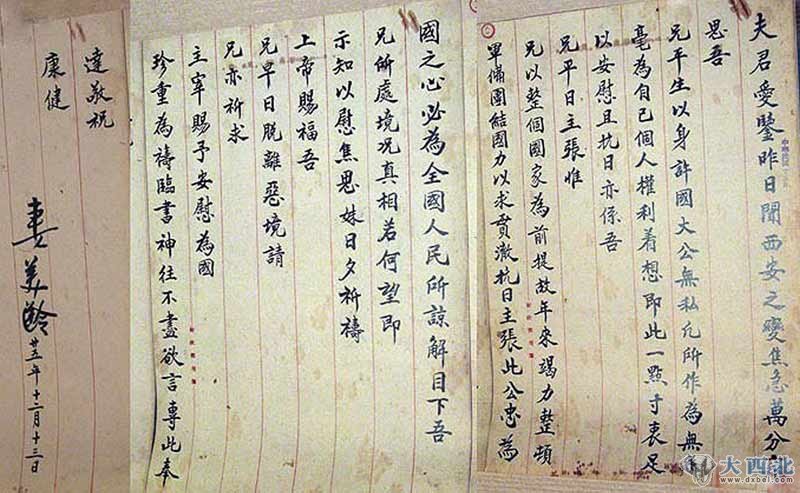 夫君愛鑒昨日聞西安之變焦急萬分
思吾
兄平生以身許國大公無私凡所作為無
毫為自己個人權利着想即此一點寸衷足
以安慰且抗日亦係吾
兄平日主張惟
兄以整個國家為前提故年來竭力整頓
軍備團結國力以求貫澈抗日主張此公忠為
國之心必為全國人民所諒解目下吾
兄所處境况真相若何望即
示知以慰焦思妹日夕祈禱
上帝賜福吾
兄早日脫離惡境請
兄亦祈求
主宰賜予安慰為國
珍重為禱臨書神往不盡欲言專此奉
達敬祝
康健
妻美齡
廿五年十二月十三日
大西北
www.dxbei.com